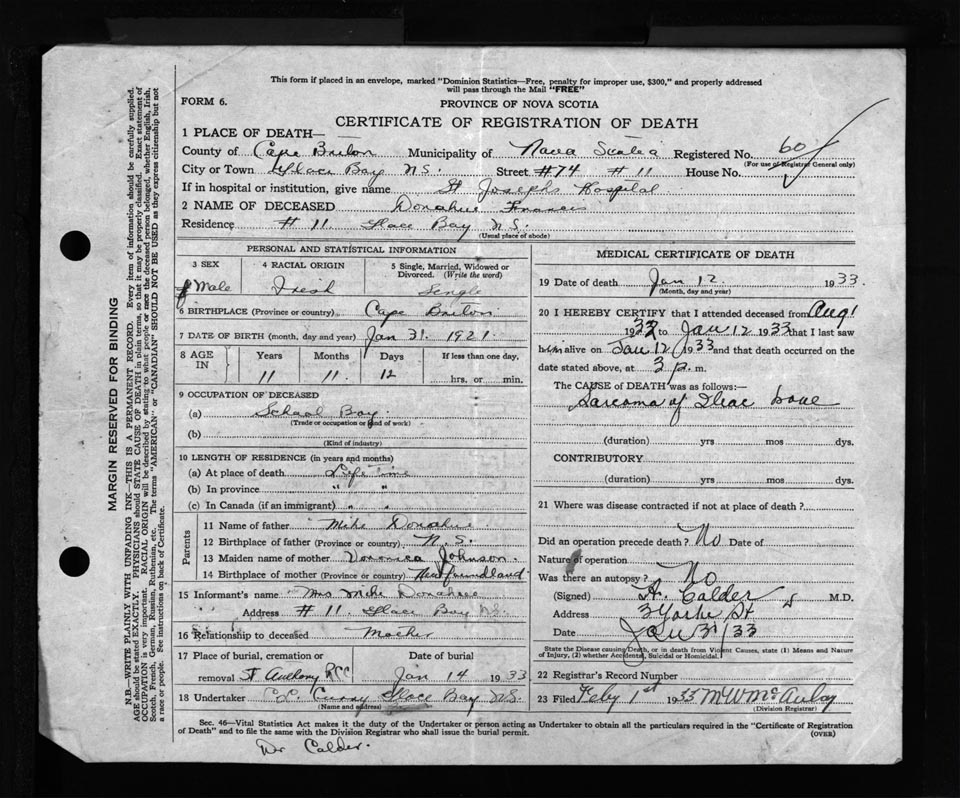 This form if placed in an envelope, marked "Dominion Statistics—Free, penalty for improper use, $300," and properly addressed
will pass through the Mail "FREE"
FORM 6.
PROVINCE OF NOVA SCOTIA
CERTIFICATE OF REGISTRATION OF DEATH
1 PLACE OF DEATH—
County of Cape Breton Municipality of Nova Scotia Registered No. 60
(For use of Registrar General only)
City or Town Glace Bay N.S. Street #74 #11 House No.
If in hospital or institution, give name St Josephs Hospital
2 NAME OF DECEASED Donahue Francis
Residence #11 Glace Bay N.S.
(Usual place of abode)
PERSONAL AND STATISTICAL INFORMATION
3 SEX 4 RACIAL ORIGIN 5 Single, Married, Widowed or
Divorced. (Write the word)
Male Iresh Single
6 BIRTHPLACE (Province or country) Cape Breton
7 DATE OF BIRTH (month, day and year) Jan 31. 1921
8 AGE IN Years Months Days If less than one day.
11 11. 12 hrs. or min.
9 OCCUPATION OF DECEASED
(a) School Boy
(Trade or occupation or kind of work)
(b)
(Kind of industry)
10 LENGTH OF RESIDENCE (in years and months)
(a) At place of death Life Time
(b) In province " "
(c) In Canada (if an immigrant) " "
Parents
11 Name of father Mike Donahue
12 Birthplace of father (Province or country) N.S.
13 Maiden name of mother Veronica Johnson.
14 Birthplace of mother (Province or country) Newfoundland
15 Informant's name Mrs Mike Donahue
Address #11 Glace Bay N.S.
16 Relationship to deceased Mother
17 Place of burial, cremation or Date of burial
removal St Anthony RCC Jan 14 1933
18 Undertaker C.C. Curry Glace Bay N.S.
(Name and address)
MEDICAL CERTIFICATE OF DEATH
19 Date of death Jan 12 1933.
(Month, day and year)
20 I HEREBY CERTIFY that I attended deceased from Aug 1
1932 to Jan 12 1933 that I last saw
him alive on Jan 12 1933 and that death occurred on
date stated above, at 3 p. m.
The CAUSE of DEATH was as follows:—
Sarcoma of Iliac bone
(duration) yrs mos dys.
CONTRIBUTORY
(duration) yrs mos dys.
21 Where was disease contracted if not at place of death?
Did an operation precede death? No Date of
Nature of operation
Was there an autopsy? No
(Signed) A. Calder M.D.
Address 3 Yorke St
Date Jan 31/33
State the Disease causing Death, or in death from Violent Causes, state (1) Means and Nature
of Injury, (2) whether Accidental, Suicidal or Homicidal.
22 Registrar's Record Number
23 Filed Feby 1st 1933 M W McAulay
(Division Registrar)
Sec. 46—Vital Statistics Act makes it the duty of the Undertaker or person acting as Undertaker to obtain all the particulars required in the "Certificate of Registration
of Death" and to file the same with the Division Registrar who shall issue the burial permit.
(OVER)
Dr Calder.
MARGIN RESERVED FOR BINDING
N.B.—WRITE PLAINLY WITH UNFADING INK—THIS IS A PERMANENT RECORD. Every item of information should be carefully supplied.
AGE should be stated EXACTLY. PHYSICIANS should STATE CAUSE OF DEATH in plain terms, so that it may be properly classified. Exact statement of
OCCUPATION is very important. RACIAL ORIGIN will be described by stating to what people or race the deceased person belonged, whether English, Irish,
Scotch, French, German, Russian, Ruthenian, etc. The terms "AMERICAN" or "CANADIAN" SHOULD NOT BE USED as they express citizenship but not
a race or people. See instructions on back of Certificate.